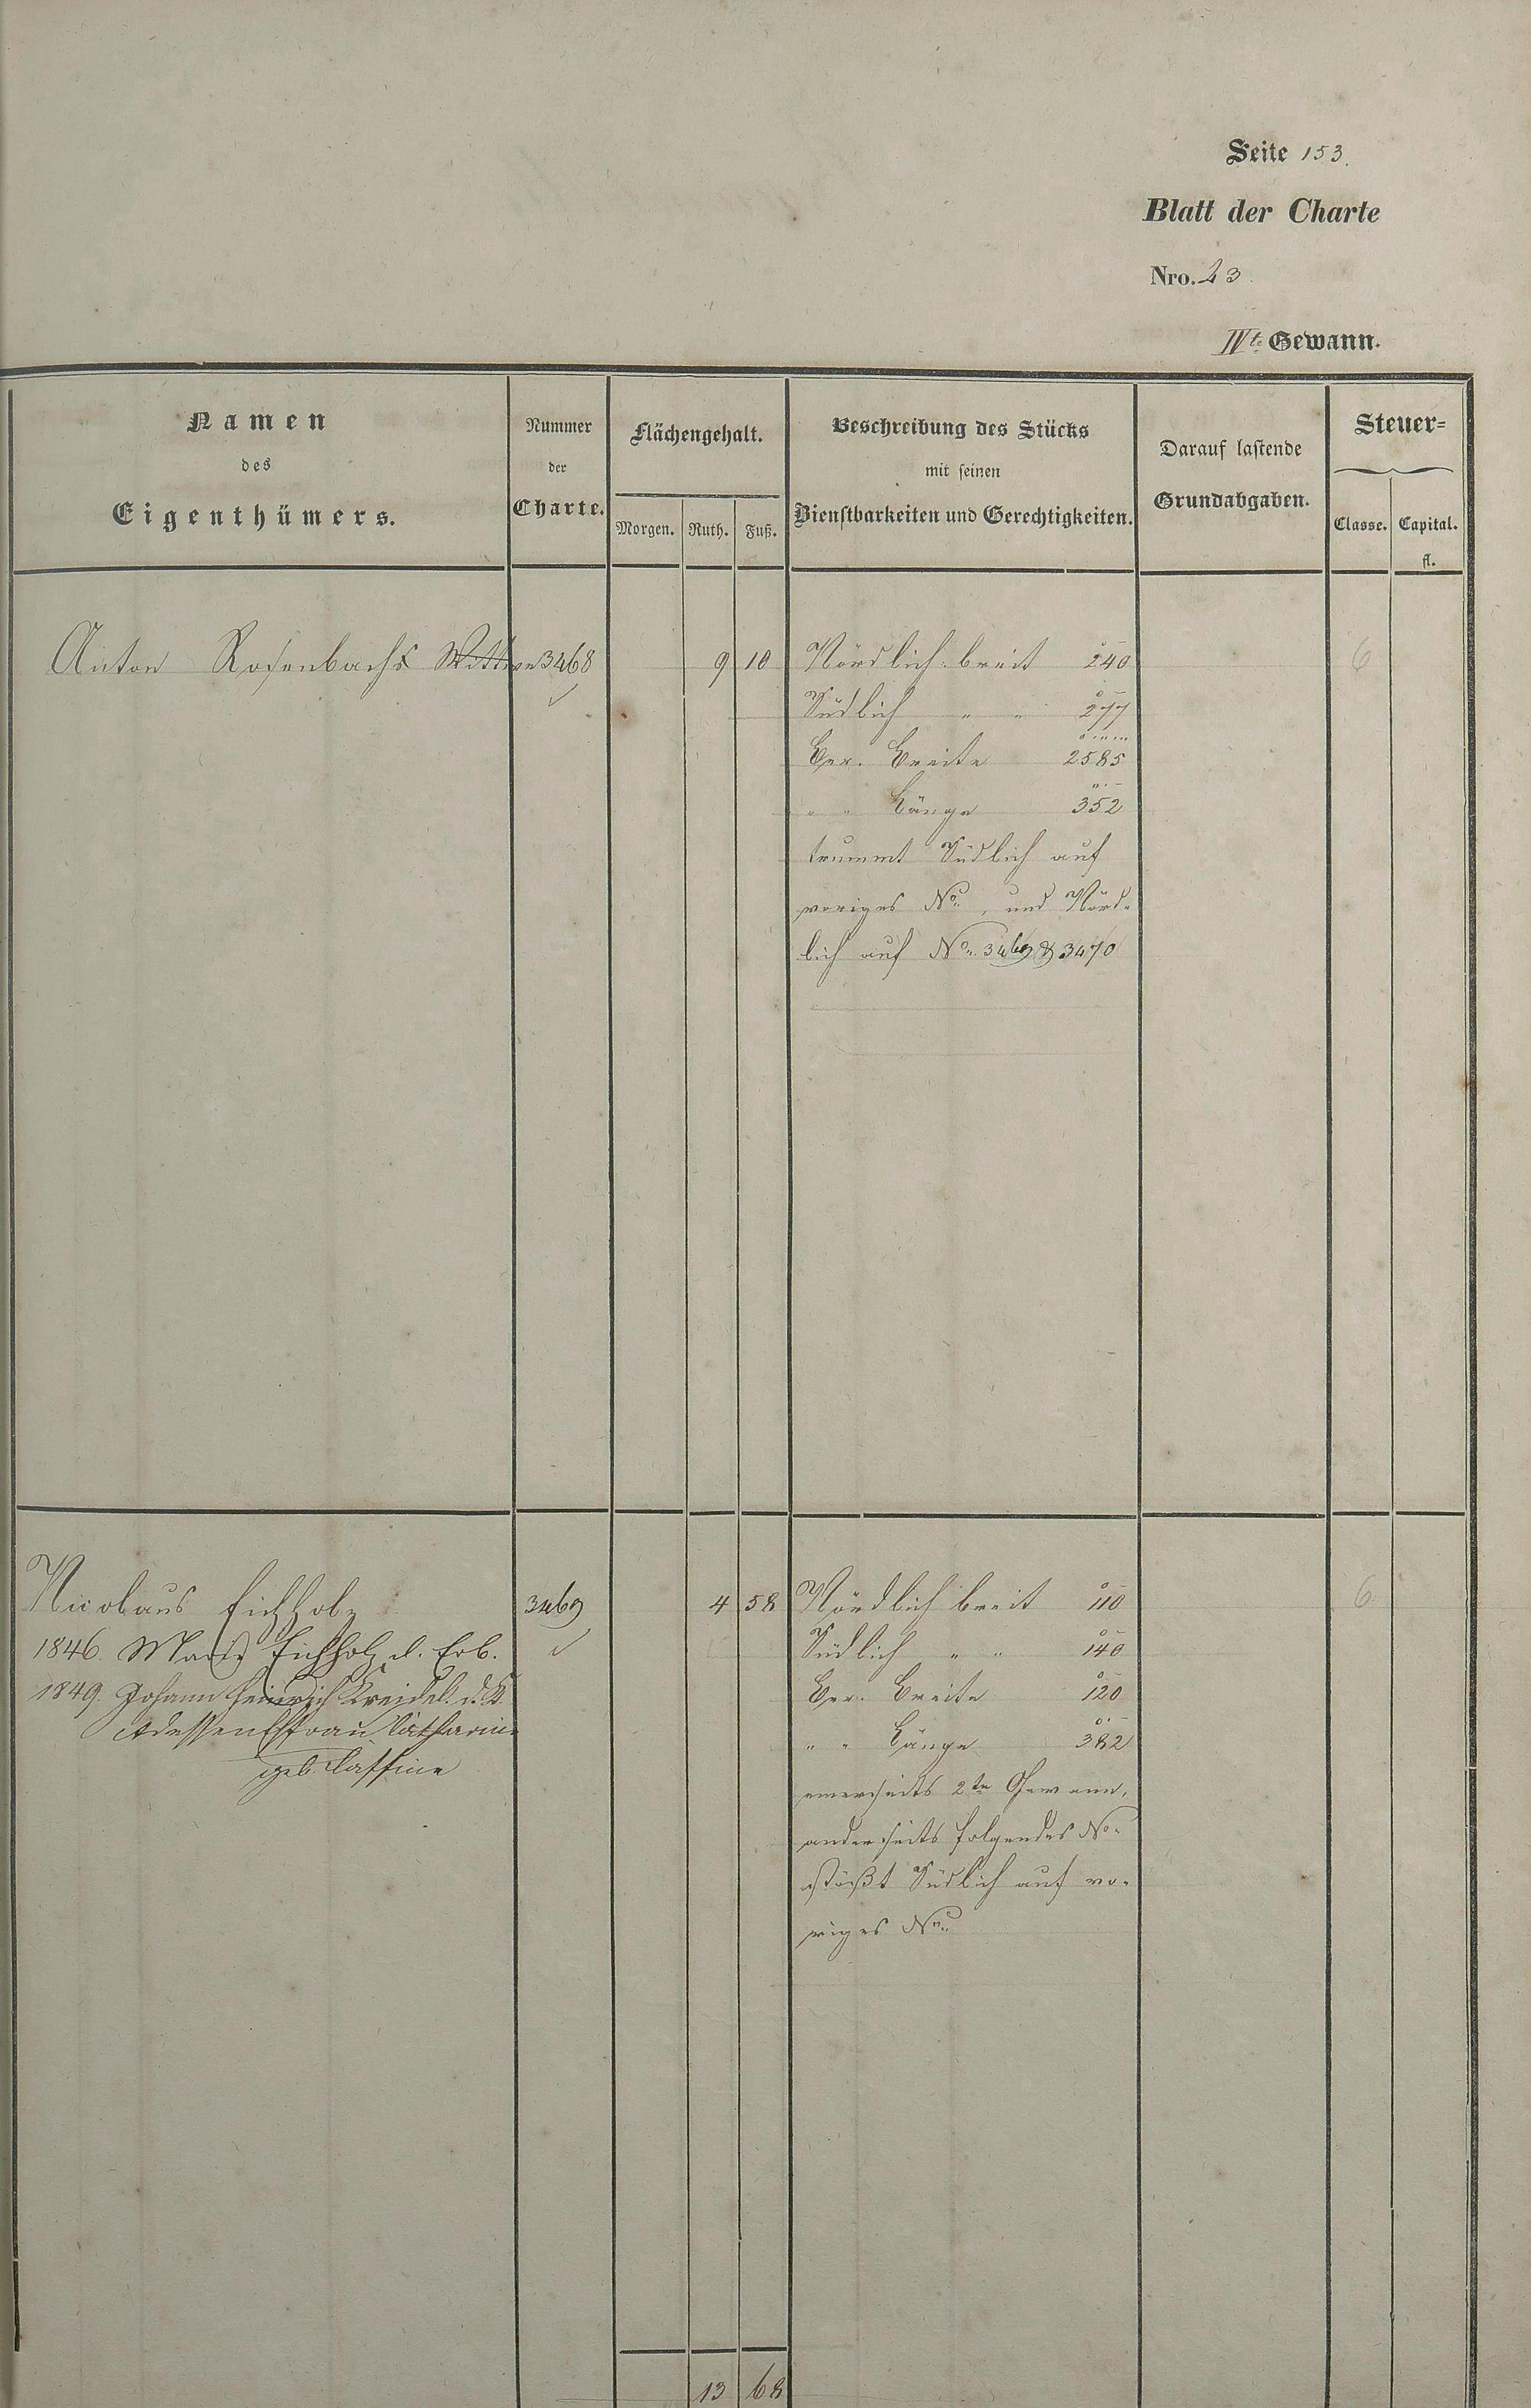 Seite 153.
Blatt der Charte
Nro. 23.
IVte Gewann.
Namen
des
Eigenthümers.
Nummer
der
Charte.
Flächengehalt.
Morgen. Ruth. Fuß.
Beschreibung des Stücks
mit seinen
Dienstbarkeiten und Gerechtigkeiten.
Darauf lastende
Grundabgaben.
Steuer=
Classe. Capital.
fl.
Anton Rosenbachs Wittwe 3468 9 10 Nördlich breit 240 6
Südlich " " 277
Ber. Breite 2585
" " Länge 352
trummt Südlich auf
voriges No., und Nörd-
lich auf No. 3469 & 3470
Nicolaus Eichholz 3469 4 58 Nördlich breit 110 6
1846. Maria Eichholz d. Erb.
1849. Johann Heinrich Kreidel d. K.
dessen Ehfrau Catharine
geb.
Südlich " " 140
Ber. Breite 120
" " Länge 382
einerseits 2te Gewann,
anderseits folgendes No.
stößt Südlich auf vo-
riges No.
13 68